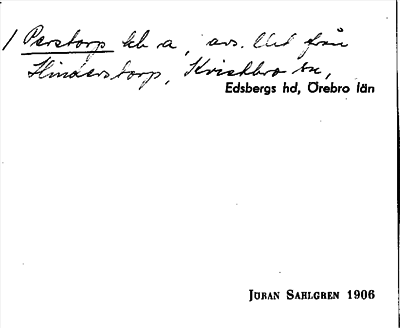 1 Perstorp kb a, avs. lht från
Hinderstorp, Kvistbro sn,
Edsbergs hd, Örebro län
JÖRAN SAHLGREN 1906